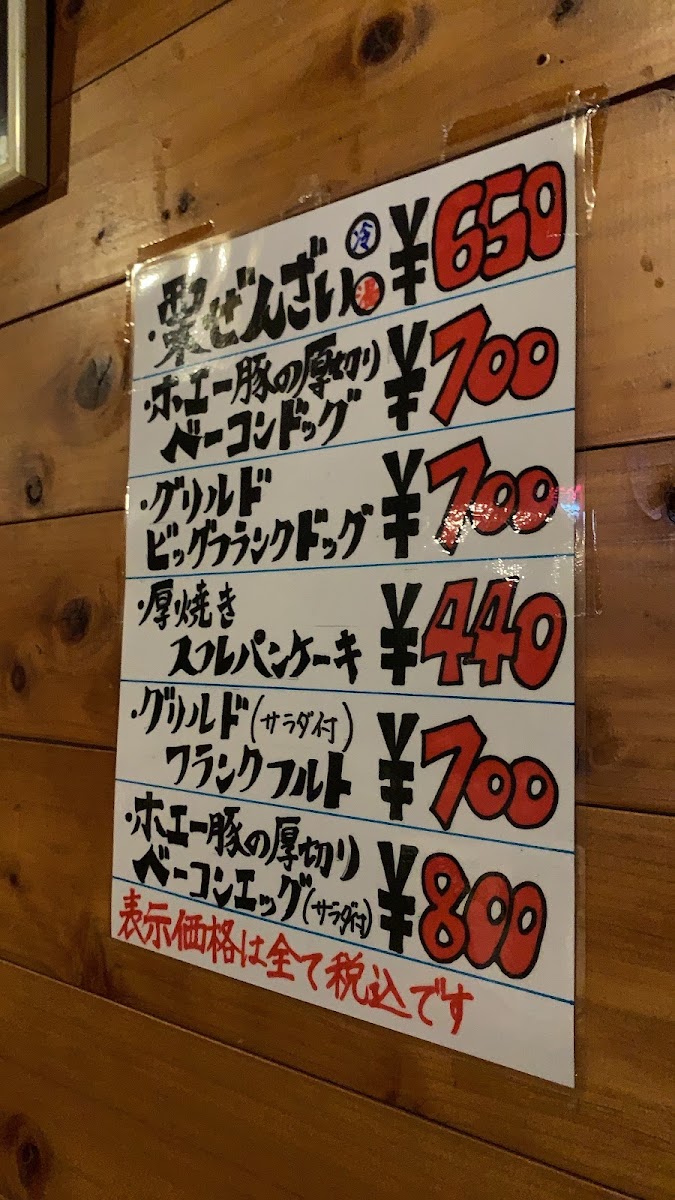 ・栗ぜんざい 冷 温 ¥650
・ホエー豚の厚切り
ベーコンドッグ ¥700
・グリルド
ビッグフランクドッグ ¥700
・厚焼き
スフレパンケーキ ¥440
・グリルド(サラダ付)
フランクフルト ¥700
・ホエー豚の厚切り
ベーコンエッグ(サラダ付) ¥800
表示価格は全て税込です